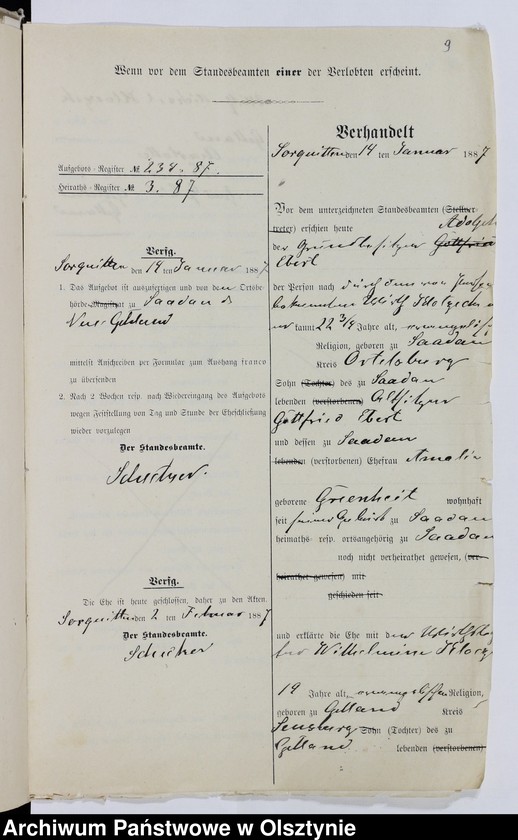 9
Wenn vor dem Standesbeamten einer der Verlobten erscheint.
Aufgebots-Register № 234. 87.
Heiraths-Register № 3. 87
Verfg.
Sorquitten den 14 ten Januar 1887
1. Das Aufgebot ist auszufertigen und von dem Ortsbe-
hörde Magistrat zu Saadau &
Neu Gelland
mittelst Anschreiben per Formular zum Aushang franco
zu übersenden
2. Nach 2 Wochen resp. nach Wiedereingang des Aufgebots
wegen Feststellung von Tag und Stunde der Eheschließung
wieder vorzulegen
Der Standesbeamte.
Verfg.
Die Ehe ist heute geschlossen, daher zu den Akten.
Sorquitten den 2 ten Februar 1887
Der Standesbeamte.
Verhandelt
Sorquitten den 14 ten Januar 1887
Vor dem unterzeichneten Standesbeamten (Stellver-
treter) erschien heute Adolph
der Grundbesitzer Gottfried
Ebert
der Person nach durch den von Person
bekannten
kannt 22 3/4 Jahre alt, evangelisch
Religion, geboren zu Saadau
Kreis Ortelsburg
Sohn (Tochter) des zu Saadau
lebenden (verstorbenen) Altsitzer
Gottfried Ebert
und dessen zu Saadau
lebenden (verstorbenen) Ehefrau Amalie
geborene Greenheit wohnhaft
seit seiner Geburt zu Saadau
heimaths- resp. ortsangehörig zu Saadau
noch nicht verheirathet gewesen, (ver-
heirathet gewesen) mit
geschieden seit
und erklärte die Ehe mit der
Wilhelmine
19 Jahre alt, evangelischen Religion,
geboren zu Gelland Kreis
Sensburg Sohn (Tochter) des zu
Gelland lebenden (verstorbenen)
Archiwum Państwowe w Olsztynie